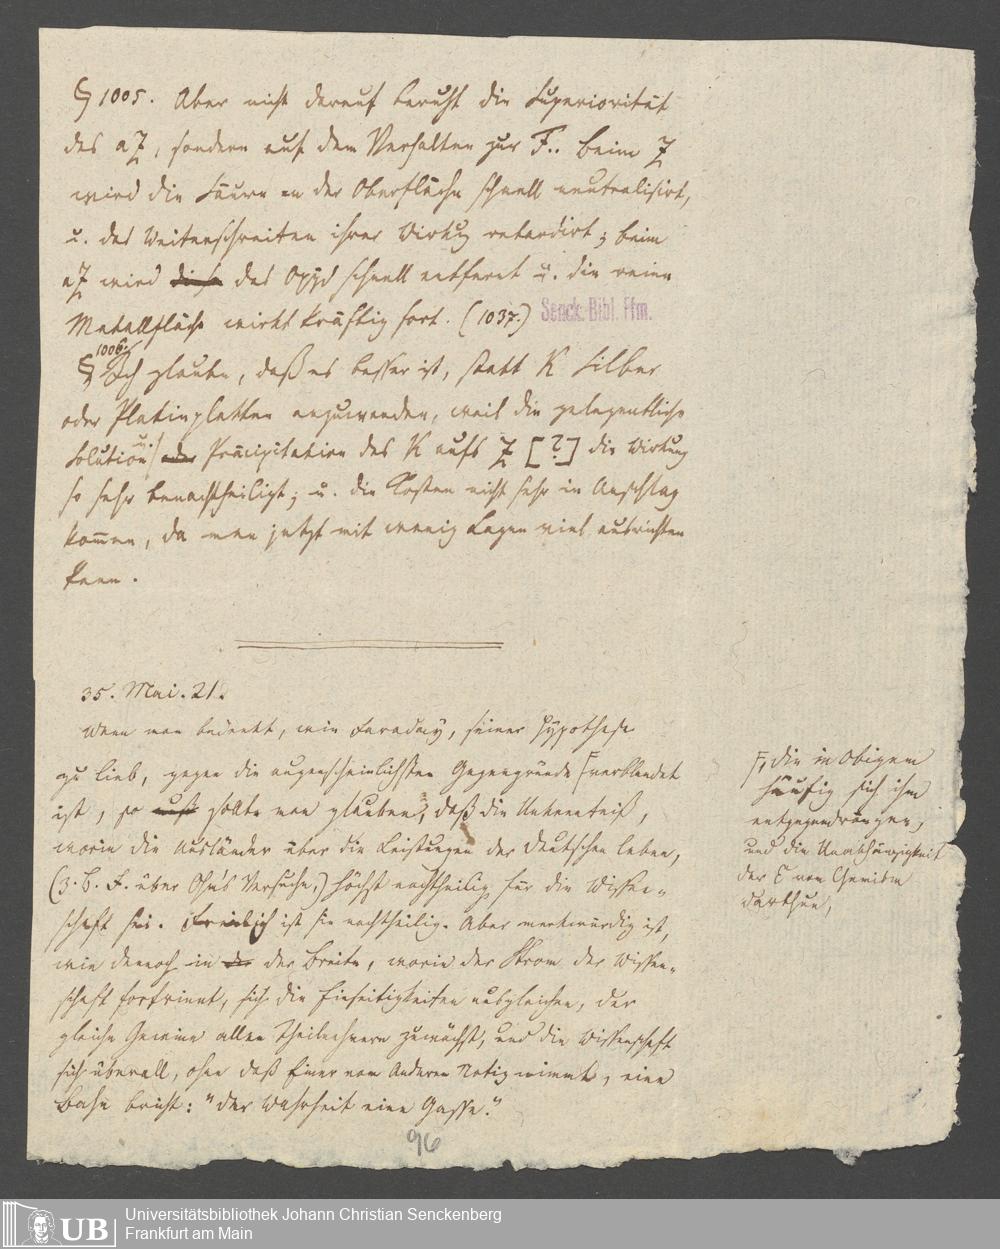 § 1005. Aber nicht darauf beruht die Superiorität
des aZ, sondern auf dem Verhalten zur F.. beim Z
wird die Säure an der Oberfläche schnell neutralisirt,
u. das Weiterschreiten ihrer Wirkug retardirt; beim
aZ wird diese das Oxyd schnell entfernt u. die reine
Metallfläche wirkt kräftig fort. (1037.)
Senck. Bibl. Ffm.
§ 1006. Ich glaube, daß es besser ist, statt K Silber
oder Platinplatten anzuwenden, weil die gelegentliche
Solution u. oder Präcipitation des K aufs Z [?] die Wirkung
so sehr benachtheiligt; u. die Kosten nicht sehr in Anschlag
kom̄en, da man jetzt mit wenig Lagen viel ausrichten
kann.
35. Mai. 21.
Wenn man bedenkt, wie Faraday, seiner Hypothese
zu lieb, gegen die augenscheinlichsten Gegengründe verblendet
ist, so sollte man glauben, daß die Unkenntniß,
worin die Ausländer über die Leistungen der Deutschen leben,
(z. B. F. über Ohm's Versuche,) höchst nachtheilig für die Wissen-
schaft sei. Freilich ist sie nachtheilig. Aber merkwürdig ist,
wie dennoch in der der Breite, worin der Strom der Wissen-
schaft fortrinnt, sich die Einseitigkeiten ausgleichen, der
gleiche Gewinn allen Theilnehmern zuwächst, und die Wissenschaft
sich überall, ohne daß Einer vom Anderen Notiz nimmt, eine
Bahn bricht: "der Wahrheit eine Gasse."
die in Obigem
häufig sich ihm
entgegendrängen,
und die Unabhängigkeit
der E vom Chemism
darthun,
96
UB
Universitätsbibliothek Johann Christian Senckenberg
Frankfurt am Main